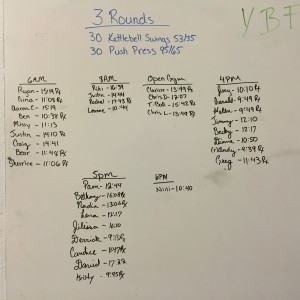 3 Rounds
VBF
30 Kettlebell Swings 53/35
30 Push Press 95/65
6AM
Ryan - 15:19 Rx
Tina - 11:08 Rx
Aaron C - 15:19
Ben - 10:38 Rx
Missy - 11:13
Justin - 14:10 Rx
Craig - 14:41
Bear - 11:49 Rx
Sherrice - 11:06 Rx
8AM
Riki - 16:39
Justin - 14:44
Rachel - 17:43 Rx
Leanne - 10:41
Open Gym
Clarise - 13:49 Rx
Chris D. - 12:27
T-Bell - 15:42 Rx
Chris L. - 13:49 Rx
4PM
Joey - 10:10 Rx
Donald - 9:49 Rx
Helen - 9:44 Rx
Jimmy - 12:10
Becky - 12:17
Dianne - 10:50
Mandy - 9:39 Rx
Greg - 11:43 Rx
5pm
Pam - 12:44
Bethany - 16:08 Rx
Nadia - 13:04 Rx
Lora - 12:17
Jilissa - 11:10
Derrick - 9:13 Rx
Candice - 11:47 Rx
David - 17:22
Kristy - 9:45 Rx
6PM
Nini - 10:40